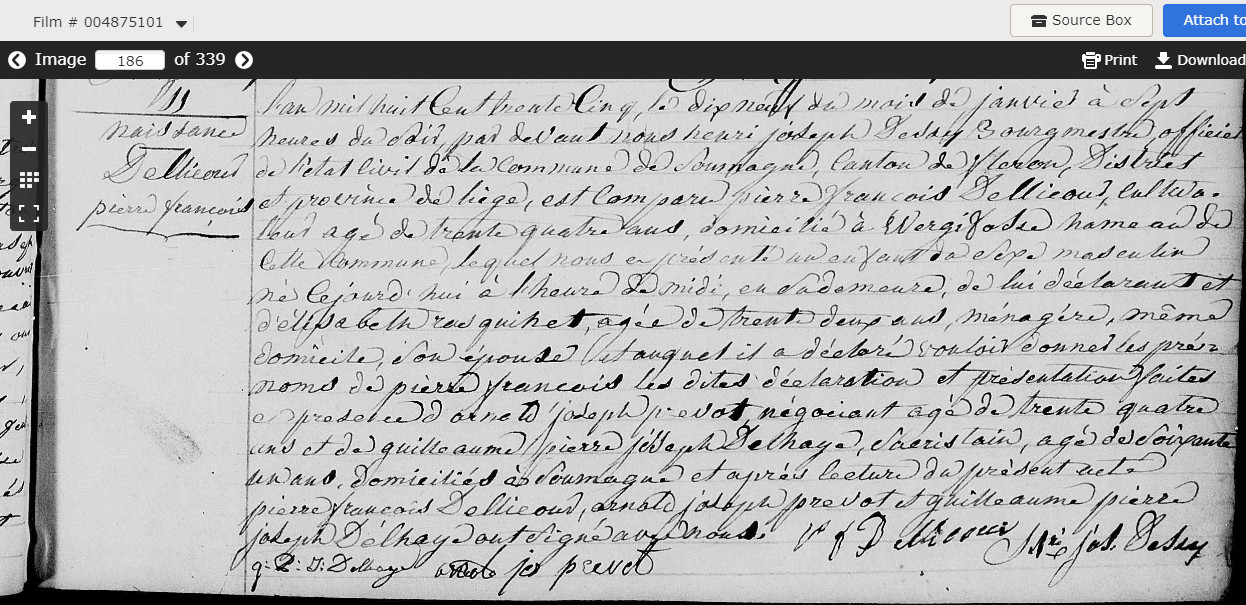 Film # 004875101
Source Box
Attach to
Image 186 of 339
Print
Download
naissance
Dellicour
pierre françois
L'an mil huit Cent trente Cinq, le dix neuf du mois de janvier à Sept
heures du Soir, par devant nous henri joseph Dessy Bourgmestre, officier
de l'état Civil de la Commune de Soumagne, Canton de fleron, District
et province de liége, est Comparu pierre françois Dellicour, Cultiva-
teur agé de trente quatre ans, domicilié à Wergifosse hameau de
Cette Commune, lequel nous a présenté un enfant du Sexe masculin
né Cejourd'hui à l'heure de midi, en Sa demeure, de lui déclarant et
d'élisabeth rasquinet, agée de trente deux ans, ménagére, même
domicile, Son épouse et auquel il a déclaré vouloir donner les pré-
noms de pierre françois les dites déclaration et présentation faites
en presence d'arnold joseph prevot, négociant agé de trente quatre
ans et de guilleaume pierre joseph Delhaye, Sacristain, agé de Soixante
un ans, domiciliés à Soumagne et aprés lecture du présent acte
pierre françois Dellicour, arnold joseph prevot et guilleaume pierre
joseph Delhaye ont Signé avec nous.
p f Dellicour
hri jos. Dessy
g: P: J: Delhaye
arnold jos prevot